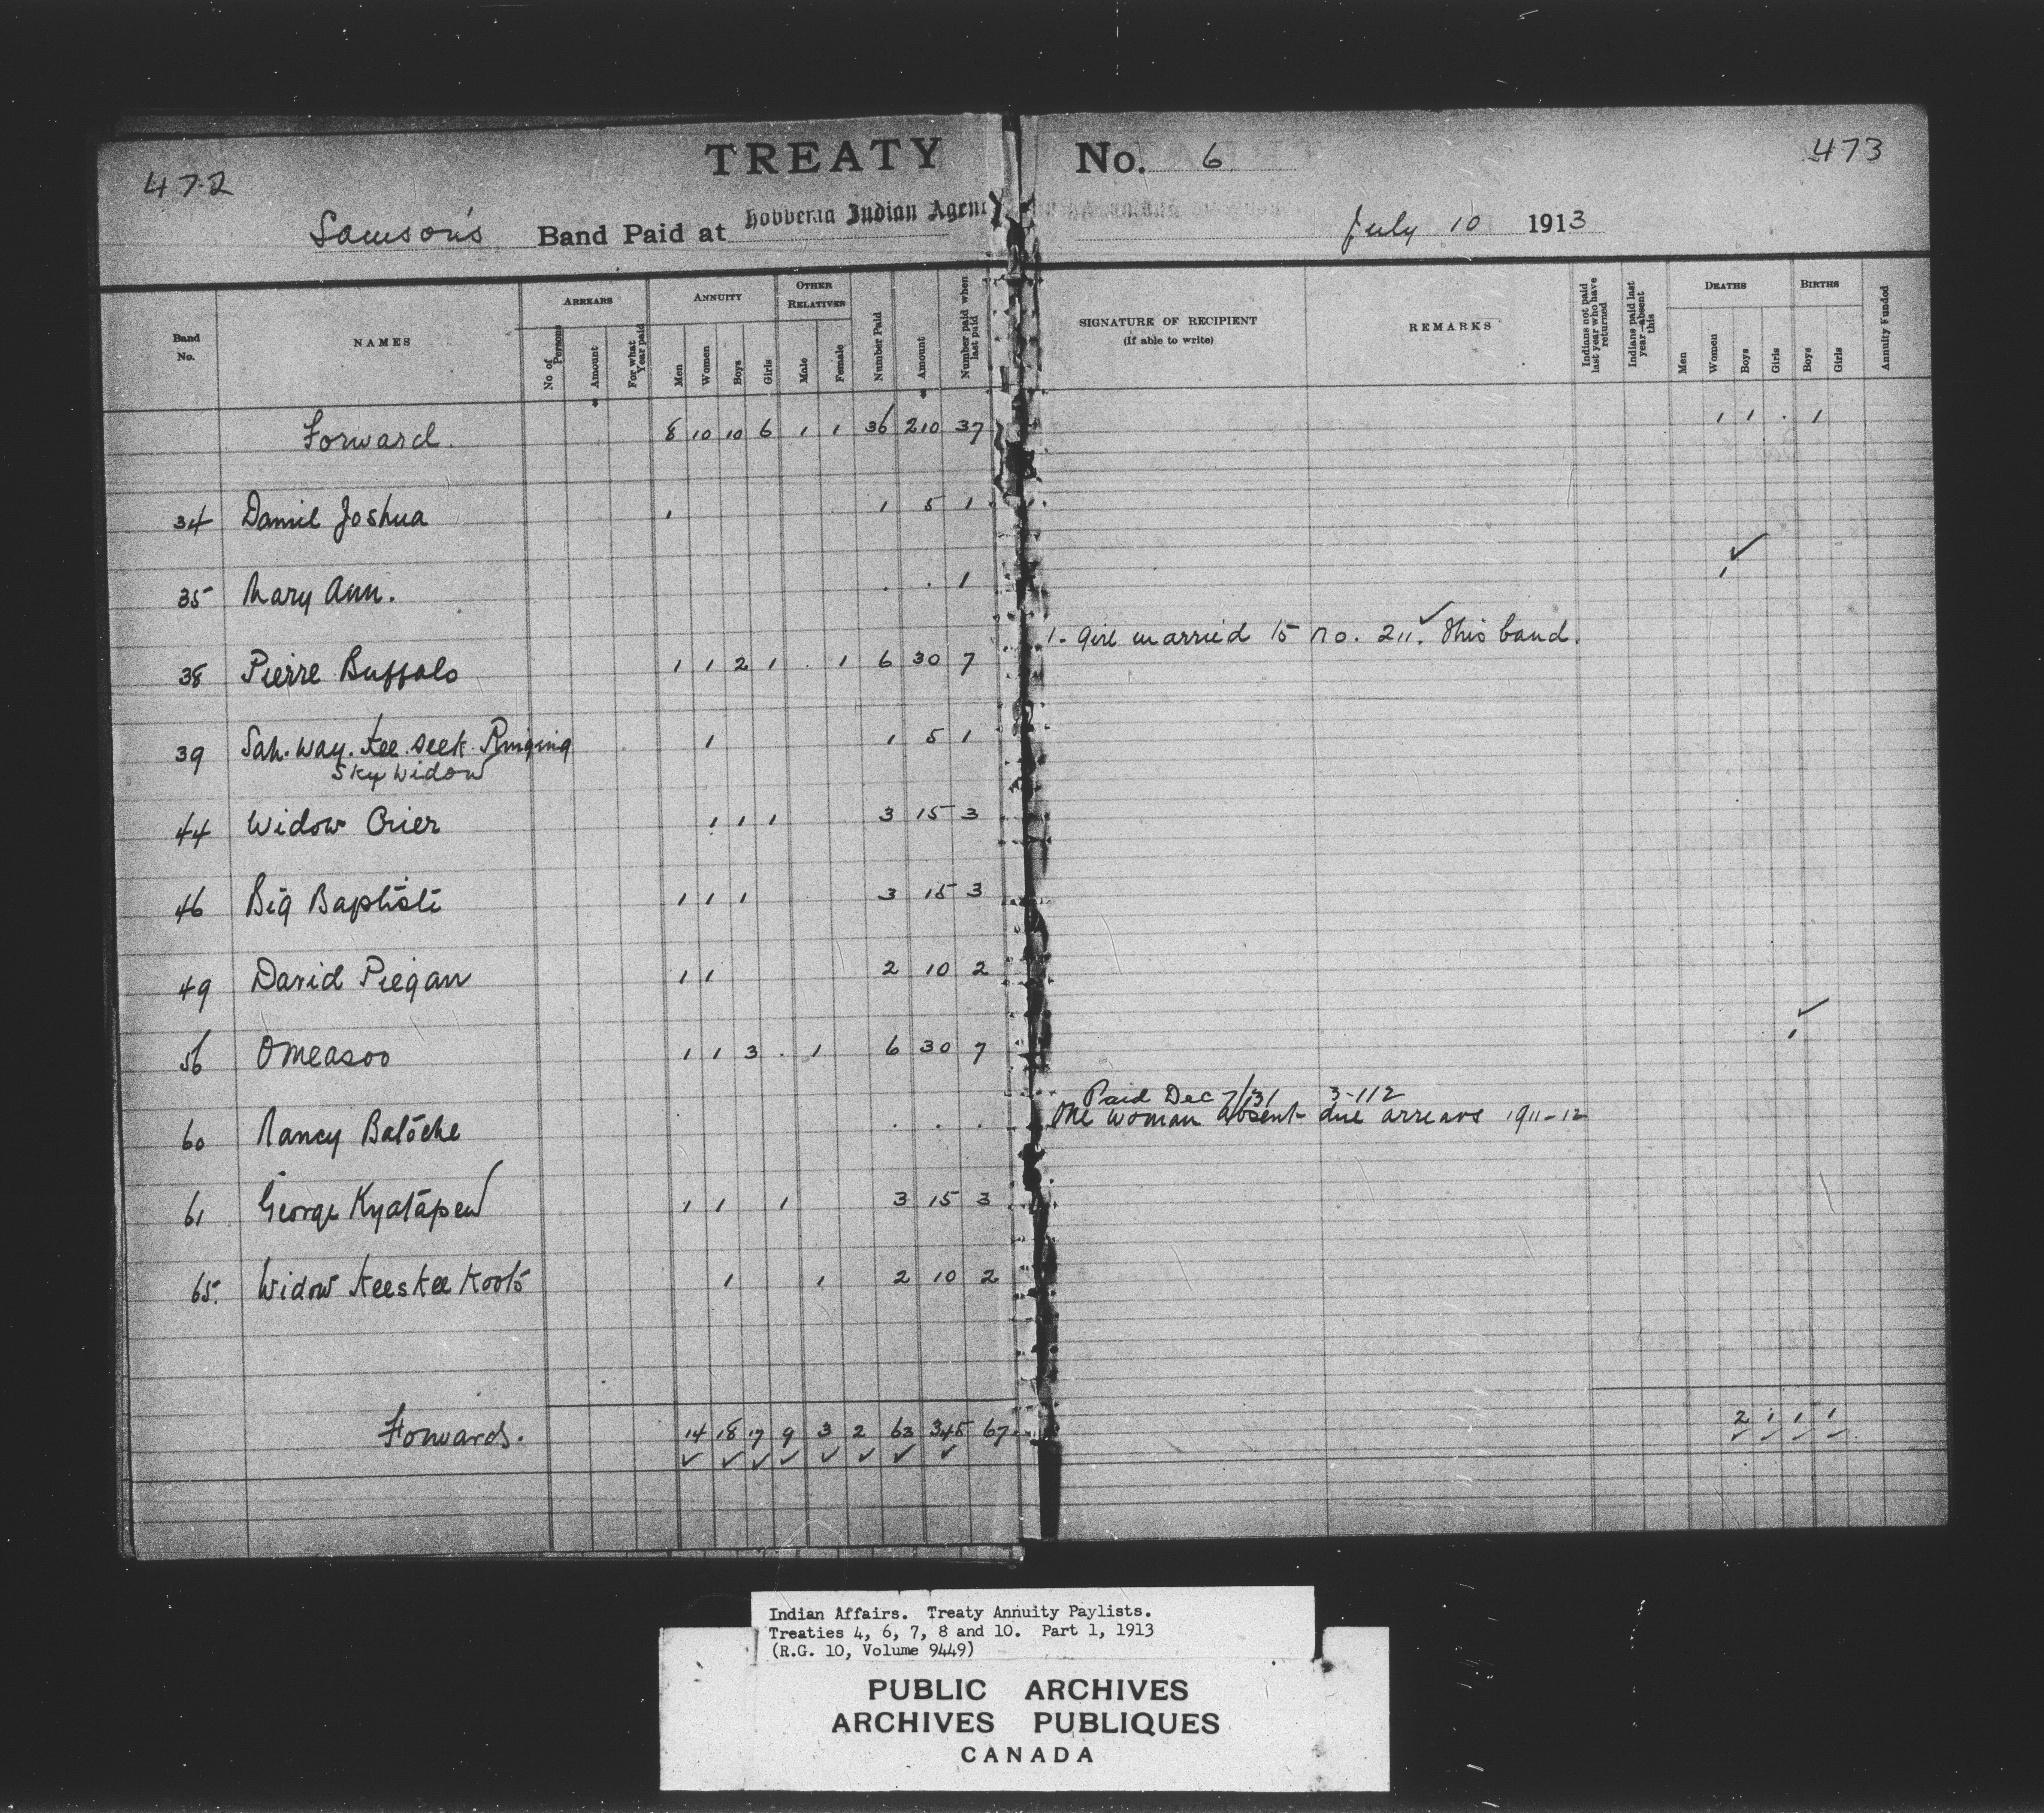 472
TREATY No. 6
473
Samson's Band Paid at Hobbema Indian Agency July 10 1913
Band No. NAMES ARREARS No of Persons Amount For what Year paid ANNUITY Men Women Boys Girls OTHER RELATIVES Male Female Number Paid Amount Number paid when last paid SIGNATURE OF RECIPIENT (If able to write) REMARKS Indians not paid last year who have returned Indians paid last year—absent this DEATHS Men Women Boys Girls BIRTHS Boys Girls Annuity Funded
Forward. 8 10 10 6 1 1 36 210 37 1 1 . 1
34 Daniel Joshua 1 1 5 1
35 Mary Ann. . . 1 1 ✓
38 Pierre Buffalo 1 1 2 1 . 1 6 30 7 1. Girl married to no. 211. ✓ this band.
39 Sah.way.tee.seek Ringing 1 1 5 1
Sky Widow
44 Widow Crier 1 1 1 3 15 3
46 Big Baptiste 1 1 1 3 15 3
49 David Piegan 1 1 2 10 2
56 Omeasoo 1 1 3 . 1 6 30 7 1 ✓
Paid Dec 7/31 3-112
60 Nancy Batoche . . . One woman absent due arrears 1911-12
61 George Kyatapew 1 1 1 3 15 3
65. Widow Keeskee Koots 1 1 2 10 2
Forwards. 14 18 17 9 3 2 63 345 67 2 1 1 1
✓ ✓ ✓ ✓ ✓ ✓ ✓ ✓ ✓ ✓ ✓ ✓
Indian Affairs. Treaty Annuity Paylists.
Treaties 4, 6, 7, 8 and 10. Part 1, 1913
(R.G. 10, Volume 9449)
PUBLIC ARCHIVES
ARCHIVES PUBLIQUES
CANADA